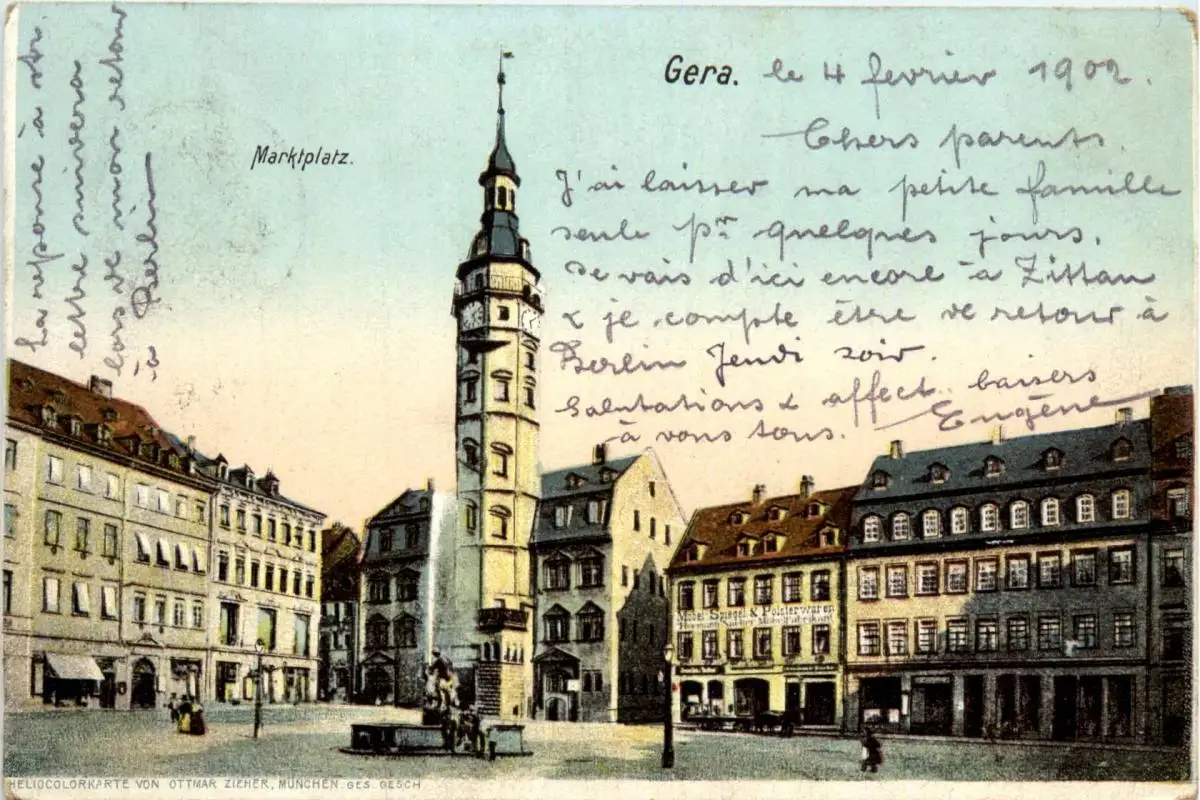 Gera. le 4 fevrier 1902.
Marktplatz.
Chers parents.
J'ai laisser ma petite famille
seule pr quelques jours.
Je vais d'ici encore à Zittau
& je compte être de retour à
Berlin Jeudi soir.
Salutations & affect. baisers
à vous tous. Eugène
La reponse à
lettre suivera
lors de mon retour
à Berlin
Möbel Spiegel & Polsterwaren
HELIOCOLORKARTE VON OTTMAR ZIEHER, MÜNCHEN. GES. GESCH